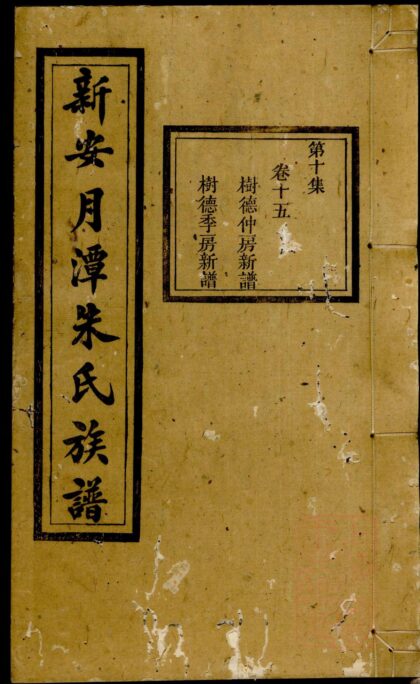 第十集
卷十五
樹德仲房新譜
樹德季房新譜
新安月潭朱氏族譜